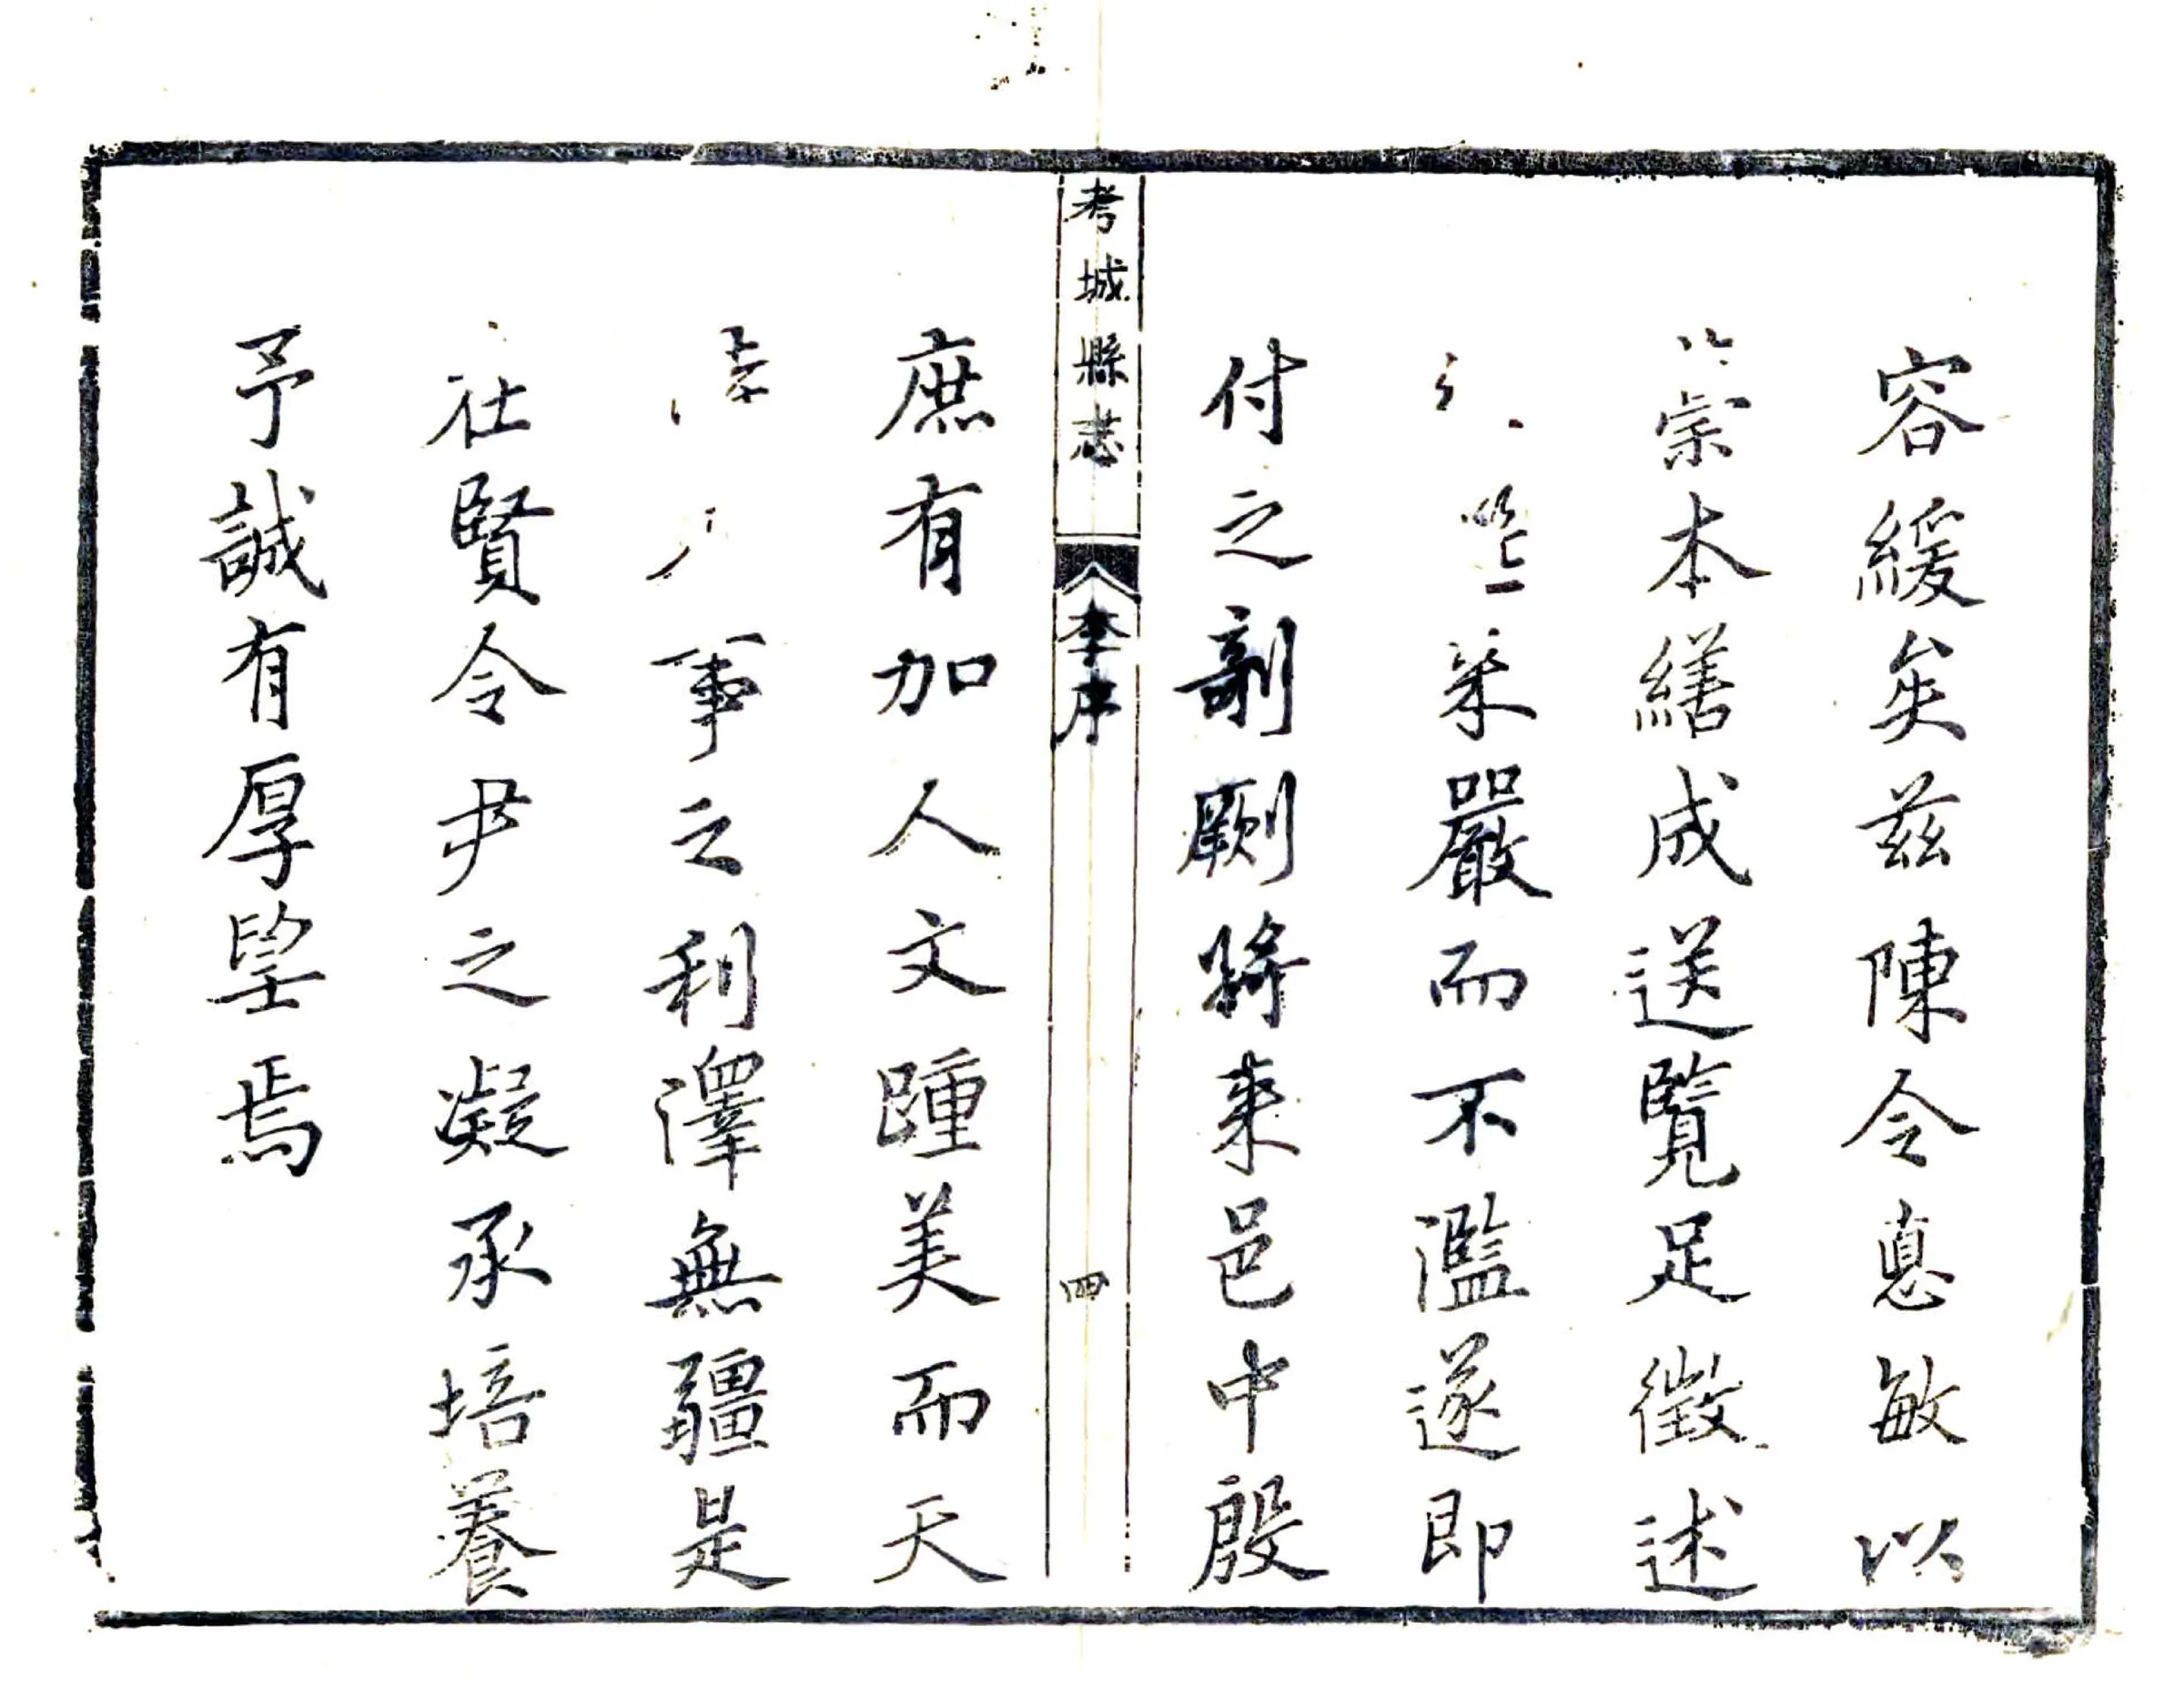 容緩矣兹陳令惪敏以
崇本繕成送覽足徵述
嚴而不濫遂即
付之剞劂將來邑中殷
考城縣志
李序
四
庶有加人文踵美而天
事之利澤無疆是
在賢令尹之凝承培養
予誠有厚望焉